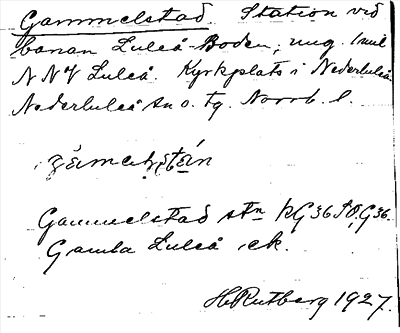 Gammelstad. Station vid
banan Luleå-Boden, ung. 1 mil
NNV Luleå. Kyrkplats i Nederluleå
Nederluleå sn o. tg. Norrb. l.
Gammelstad stn kG 36 SO, G 36.
Gamla Luleå ek.
H. Rutberg 1927.